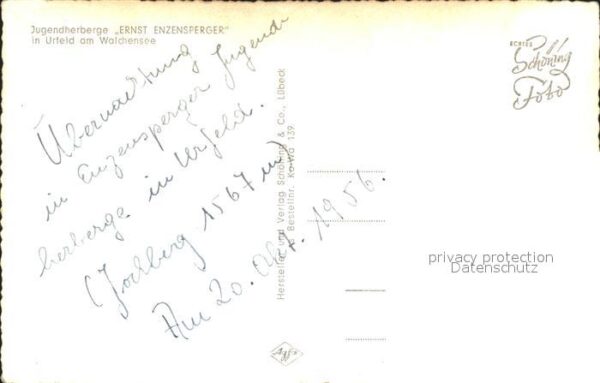 Jugendherberge „ERNST ENZENSPERGER"
in Urfeld am Walchensee
Übernachtung
in Enzensperger Jugend-
herberge in Urfeld.
(Jochberg 1567 m)
Am 20. Okt. 1956.
Hersteller und Verlag Schöning & Co., Lübeck
Bestellnr. Ko-Wa 139
ECHTES
Schöning
Foto
Agfa
privacy protection
Datenschutz